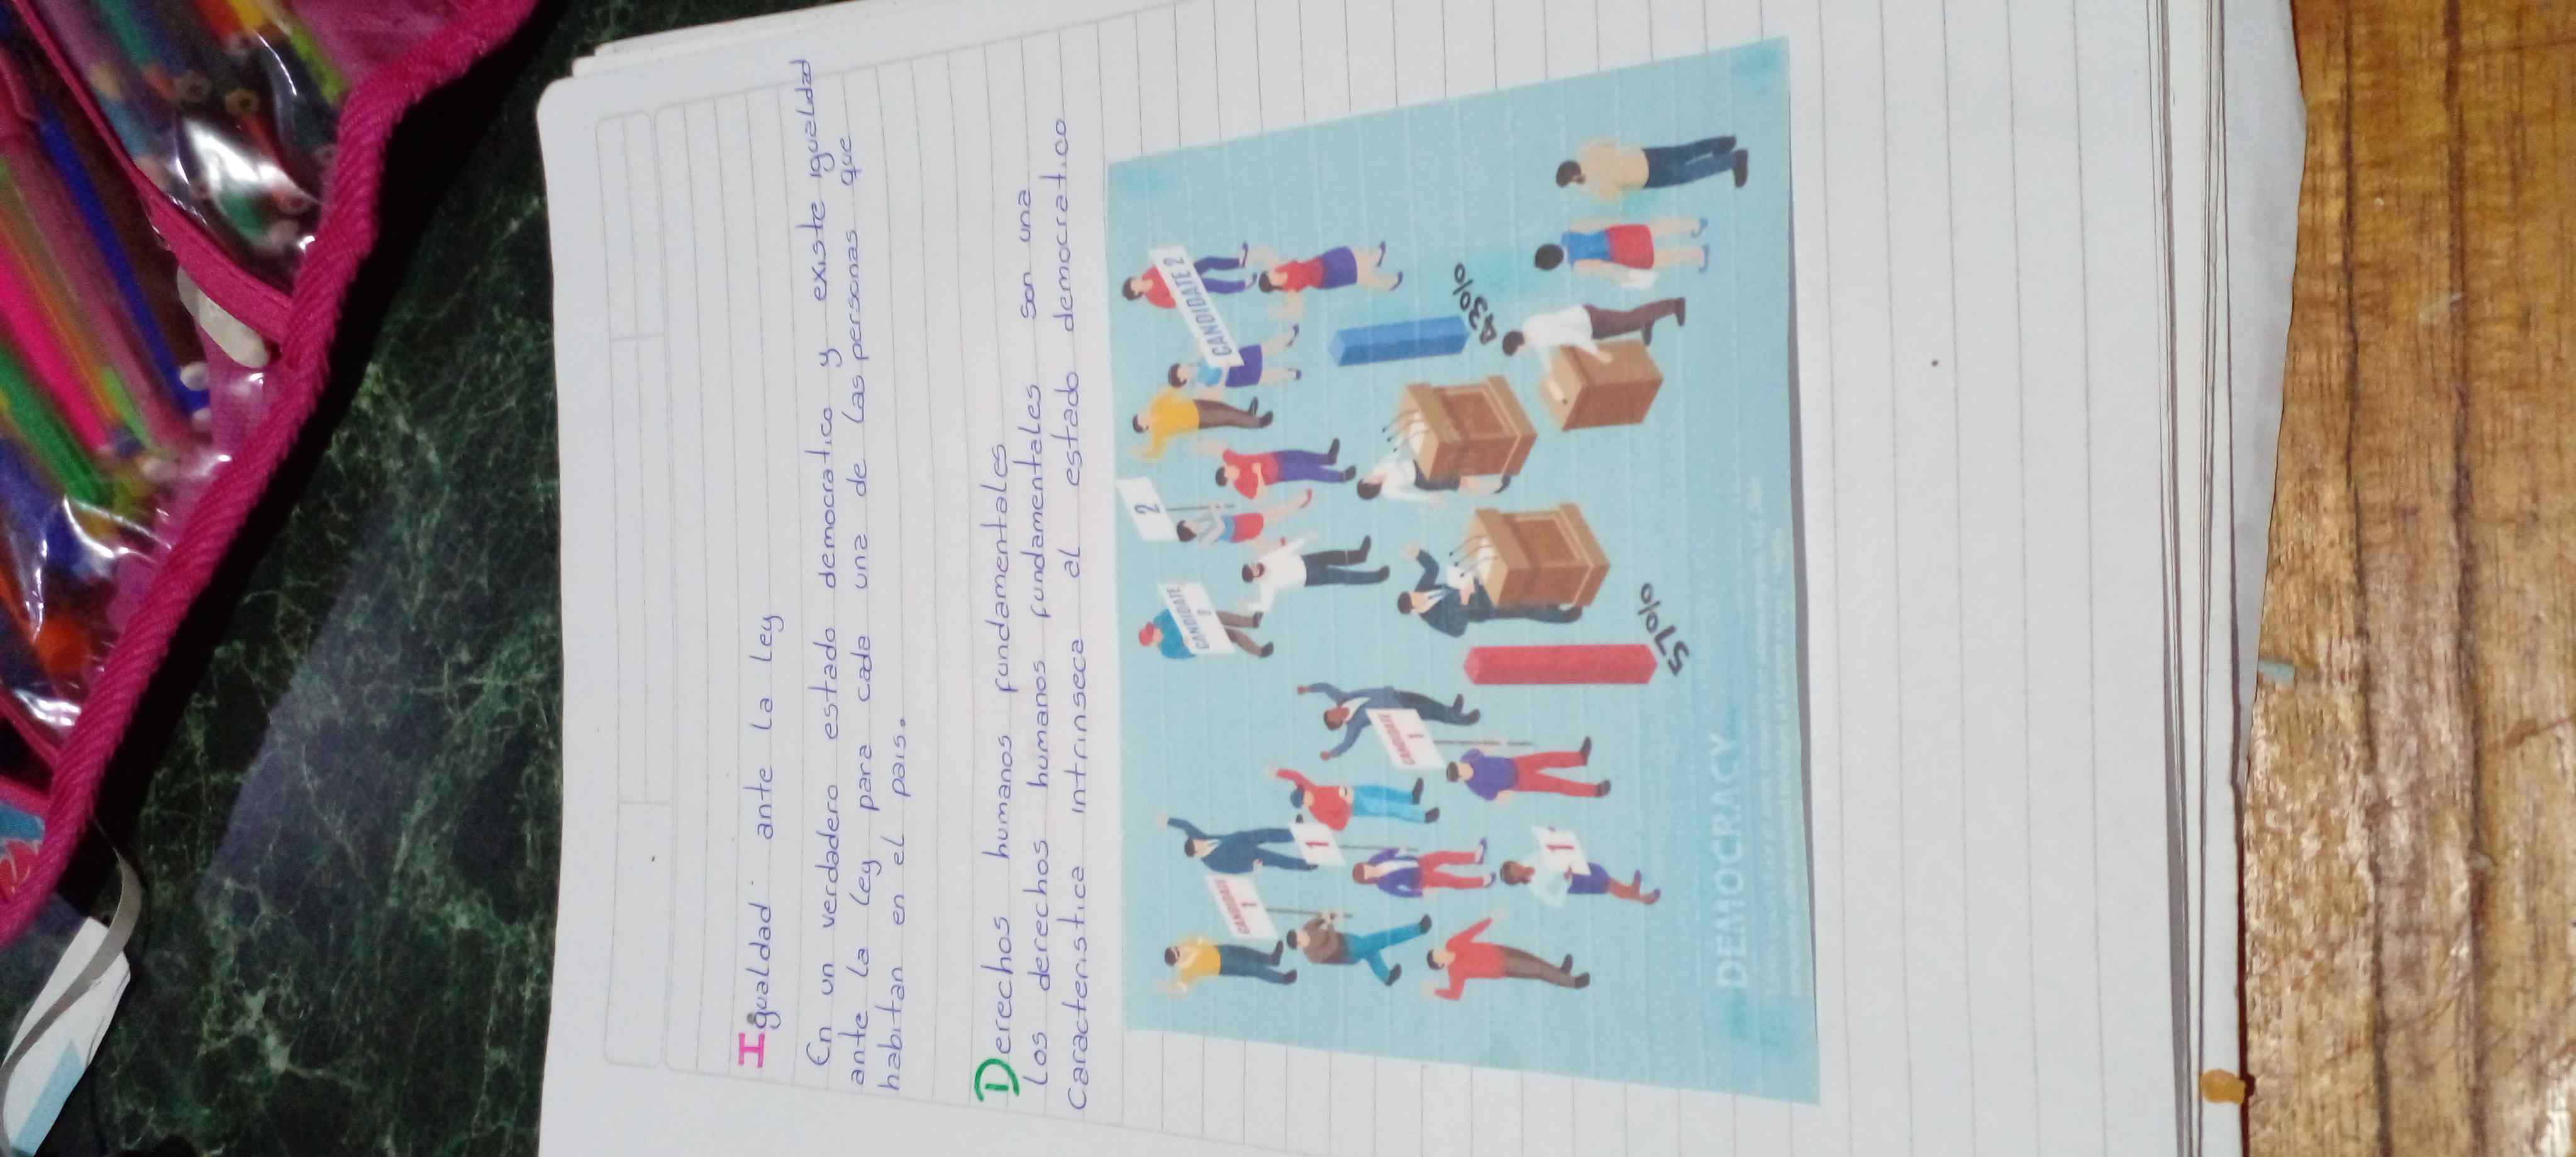 Igualdad ante la ley
En un verdadero estado democratico y existe igualdad
ante la ley para cada una de las personas que
habitan en el pais.
Derechos humanos fundamentales
Los derechos humanos fundamentales son una
caracteristica intrinseca al estado democratico
CANDIDATE 2
2
CANDIDATE
2
CANDIDATE
1
CANDIDATE
1
1
1
43%
57%
DEMOCRACY